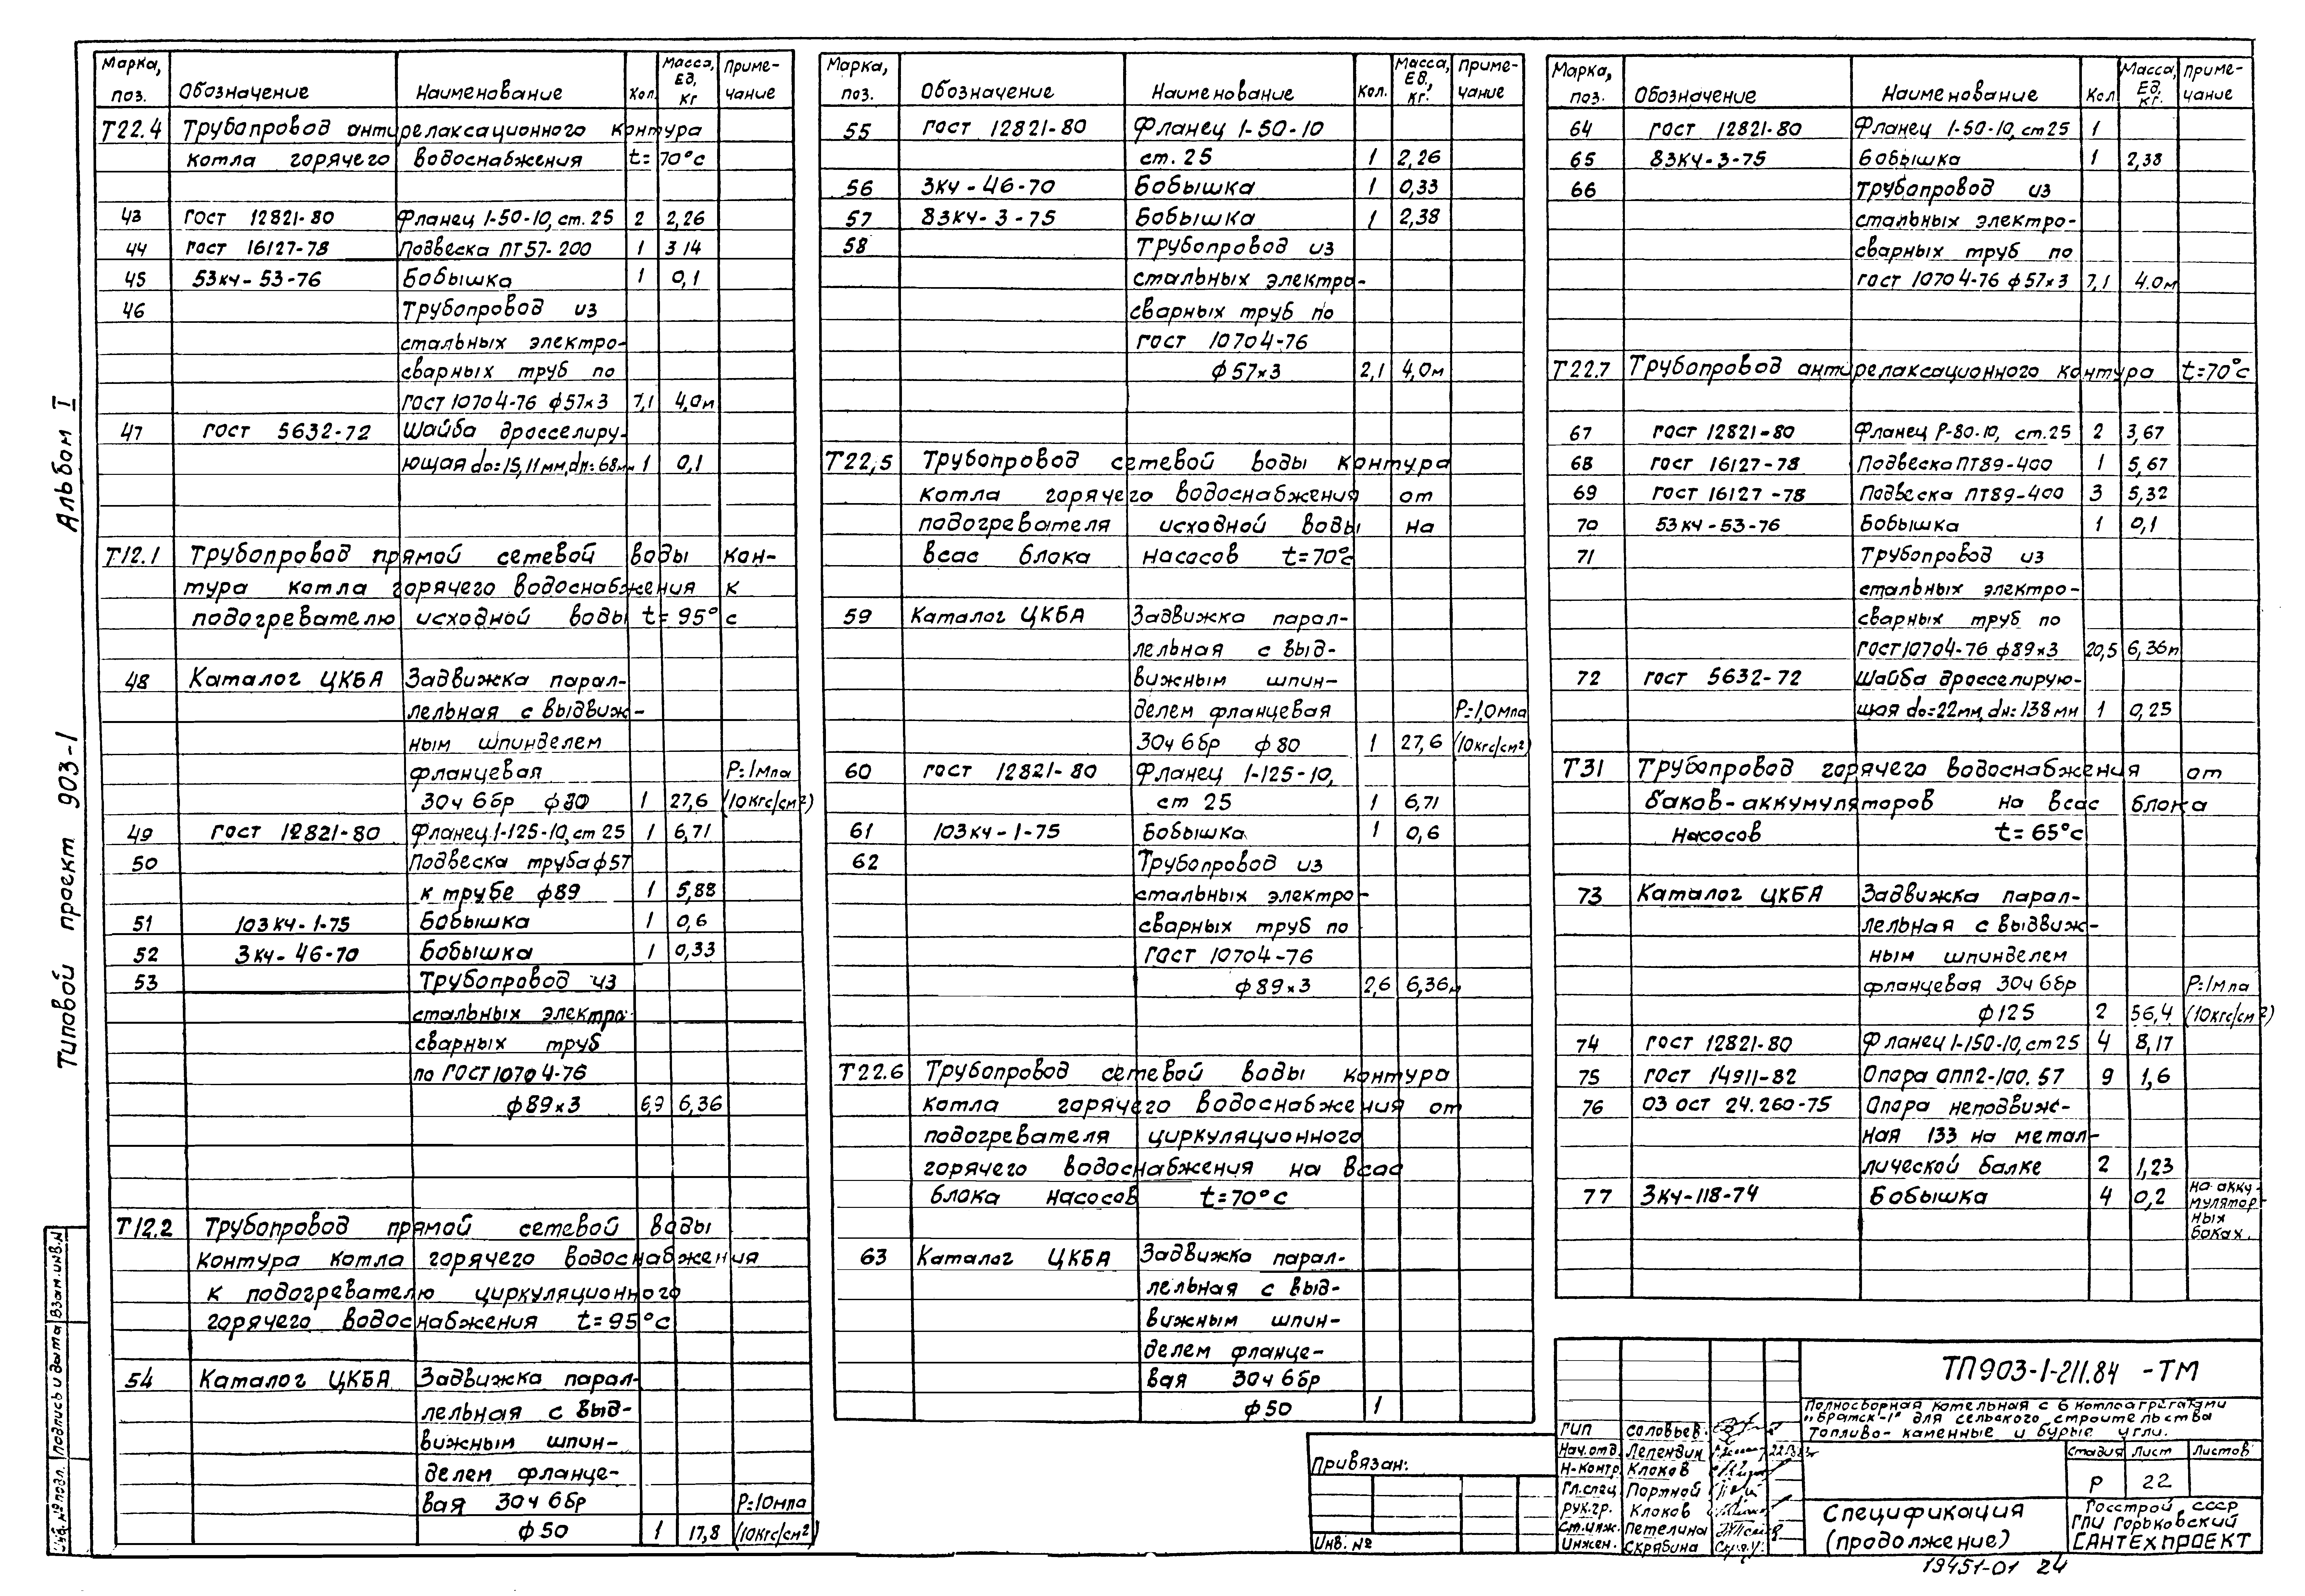 Альбом I
Типовой проект 903-1
Взам.инв.№
Подпись и дата
Инв.№подл.
Марка, поз. Обозначение Наименование Кол. Масса, Ед, кг Приме-чание
Т22.4 Трубопровод антирелаксационного контура
котла горячего водоснабжения t= 70°с
43 ГОСТ 12821-80 Фланец 1-50-10, ст. 25 2 2,26
44 ГОСТ 16127-78 Подвеска ПТ57-200 1 3 14
45 53кч-53-76 Бобышка 1 0,1
46 Трубопровод из
стальных электро-
сварных труб по
ГОСТ 10704-76 ф57х3 7,1 4,0м
47 ГОСТ 5632-72 Шайба дросселиру-
ющая do=15,11мм,dн=68мм 1 0,1
Т12.1 Трубопровод прямой сетевой воды кон-
тура котла горячего водоснабжения к
подогревателю исходной воды t= 95° с
48 Каталог ЦКБА Задвижка парал-
лельная с выдвиж-
ным шпинделем
фланцевая Р=1мпа
30ч 6бр ф80 1 27,6 (10кгс/см²)
49 ГОСТ 12821-80 Фланец 1-125-10, ст 25 1 6,71
50 Подвеска труба ф57
к трубе ф89 1 5,88
51 103кч-1-75 Бобышка 1 0,6
52 3кч-46-70 Бобышка 1 0,33
53 Трубопровод из
стальных электро
сварных труб
по ГОСТ 10704-76
ф89х3 6,9 6,36
Т12.2 Трубопровод прямой сетевой воды
контура котла горячего водоснабжения
к подогревателю циркуляционного
горячего водоснабжения t=95°с
54 Каталог ЦКБА Задвижка парал-
лельная с выд-
вижным шпин-
делем фланце-
вая 30ч 6бр Р=10мпа
ф50 1 17,8 (10кгс/см²)
Марка, поз. Обозначение Наименование Кол. Масса, Ед, кг. Приме-чание
55 ГОСТ 12821-80 Фланец 1-50-10
ст. 25 1 2,26
56 3кч-46-70 Бобышка 1 0,33
57 83кч-3-75 Бобышка 1 2,38
58 Трубопровод из
стальных электро-
сварных труб по
ГОСТ 10704-76
ф57х3 2,1 4,0м
Т22,5 Трубопровод сетевой воды контура
котла горячего водоснабжения от
подогревателя исходной воды на
всас блока насосов t=70°с
59 Каталог ЦКБА Задвижка парал-
лельная с выд-
вижным шпин-
делем фланцевая Р=1,0мпа
30ч 6бр ф80 1 27,6 (10кгс/см²)
60 ГОСТ 12821-80 Фланец 1-125-10,
ст 25 1 6,71
61 103кч-1-75 Бобышка 1 0,6
62 Трубопровод из
стальных электро-
сварных труб по
ГОСТ 10704-76
ф89х3 2,6 6,36м
Т22.6 Трубопровод сетевой воды контура
котла горячего водоснабжения от
подогревателя циркуляционного
горячего водоснабжения на всас
блока насосов t=70°с
63 Каталог ЦКБА Задвижка парал-
лельная с выд-
вижным шпин-
делем фланце-
вая 30ч 6бр
ф50 1
Марка, поз. Обозначение Наименование Кол Масса, Ед, кг. Приме-чание
64 ГОСТ 12821-80 Фланец 1-50-10, ст 25 1
65 83кч-3-75 бобышка 1 2,38
66 Трубопровод из
стальных электро-
сварных труб по
ГОСТ 10704-76 ф57х3 7,1 4.0м
Т22.7 Трубопровод антирелаксационного контура t=70°с
67 ГОСТ 12821-80 Фланец Р-80-10, ст.25 2 3,67
68 ГОСТ 16127-78 Подвеска ПТ89-400 1 5,67
69 ГОСТ 16127-78 Подвеска ПТ89-400 3 5,32
70 53кч-53-76 Бобышка 1 0,1
71 Трубопровод из
стальных электро-
сварных труб по
ГОСТ 10704-76 ф89х3 20,5 6,36м
72 ГОСТ 5632-72 Шайба дросселирую-
щая do=22мм, dн=138мм 1 0,25
Т31 Трубопровод горячего водоснабжения от
баков-аккумуляторов на всас блока
насосов t=65°с
73 Каталог ЦКБА Задвижка парал-
лельная с выдвиж-
ным шпинделем
фланцевая 30ч 6бр Р=1мпа
ф125 2 56,4 (10кгс/см²)
74 ГОСТ 12821-80 Фланец 1-150-10, ст 25 4 8,17
75 ГОСТ 14911-82 Опора ОПП2-100.57 9 1,6
76 03 ОСТ 24.260-75 Опора неподвиж-
ная 133 на метал-
лической балке 2 1,23
77 3кч-118-74 Бобышка 4 0,2 на акку-
мулятор-
ных
баках.
Привязан:
Инв. №
ТП903-1-211.84 -ТМ
Полносборная котельная с 6 котлоагрегатами
„Братск-1" для сельского строительства
Топливо-каменные и бурые угли.
ГИП Соловьев
Нач.отд. Лепендин
Н-контр. Клоков
Гл.спец. Портной
Рук.гр. Клоков
Ст.инж. Петелина
Инжен. Скрябина
Стадия Лист Листов
Р 22
Спецификация
(продолжение)
Госстрой СССР
ГПИ Горьковский
САНТЕХПРОЕКТ
19451-01 24